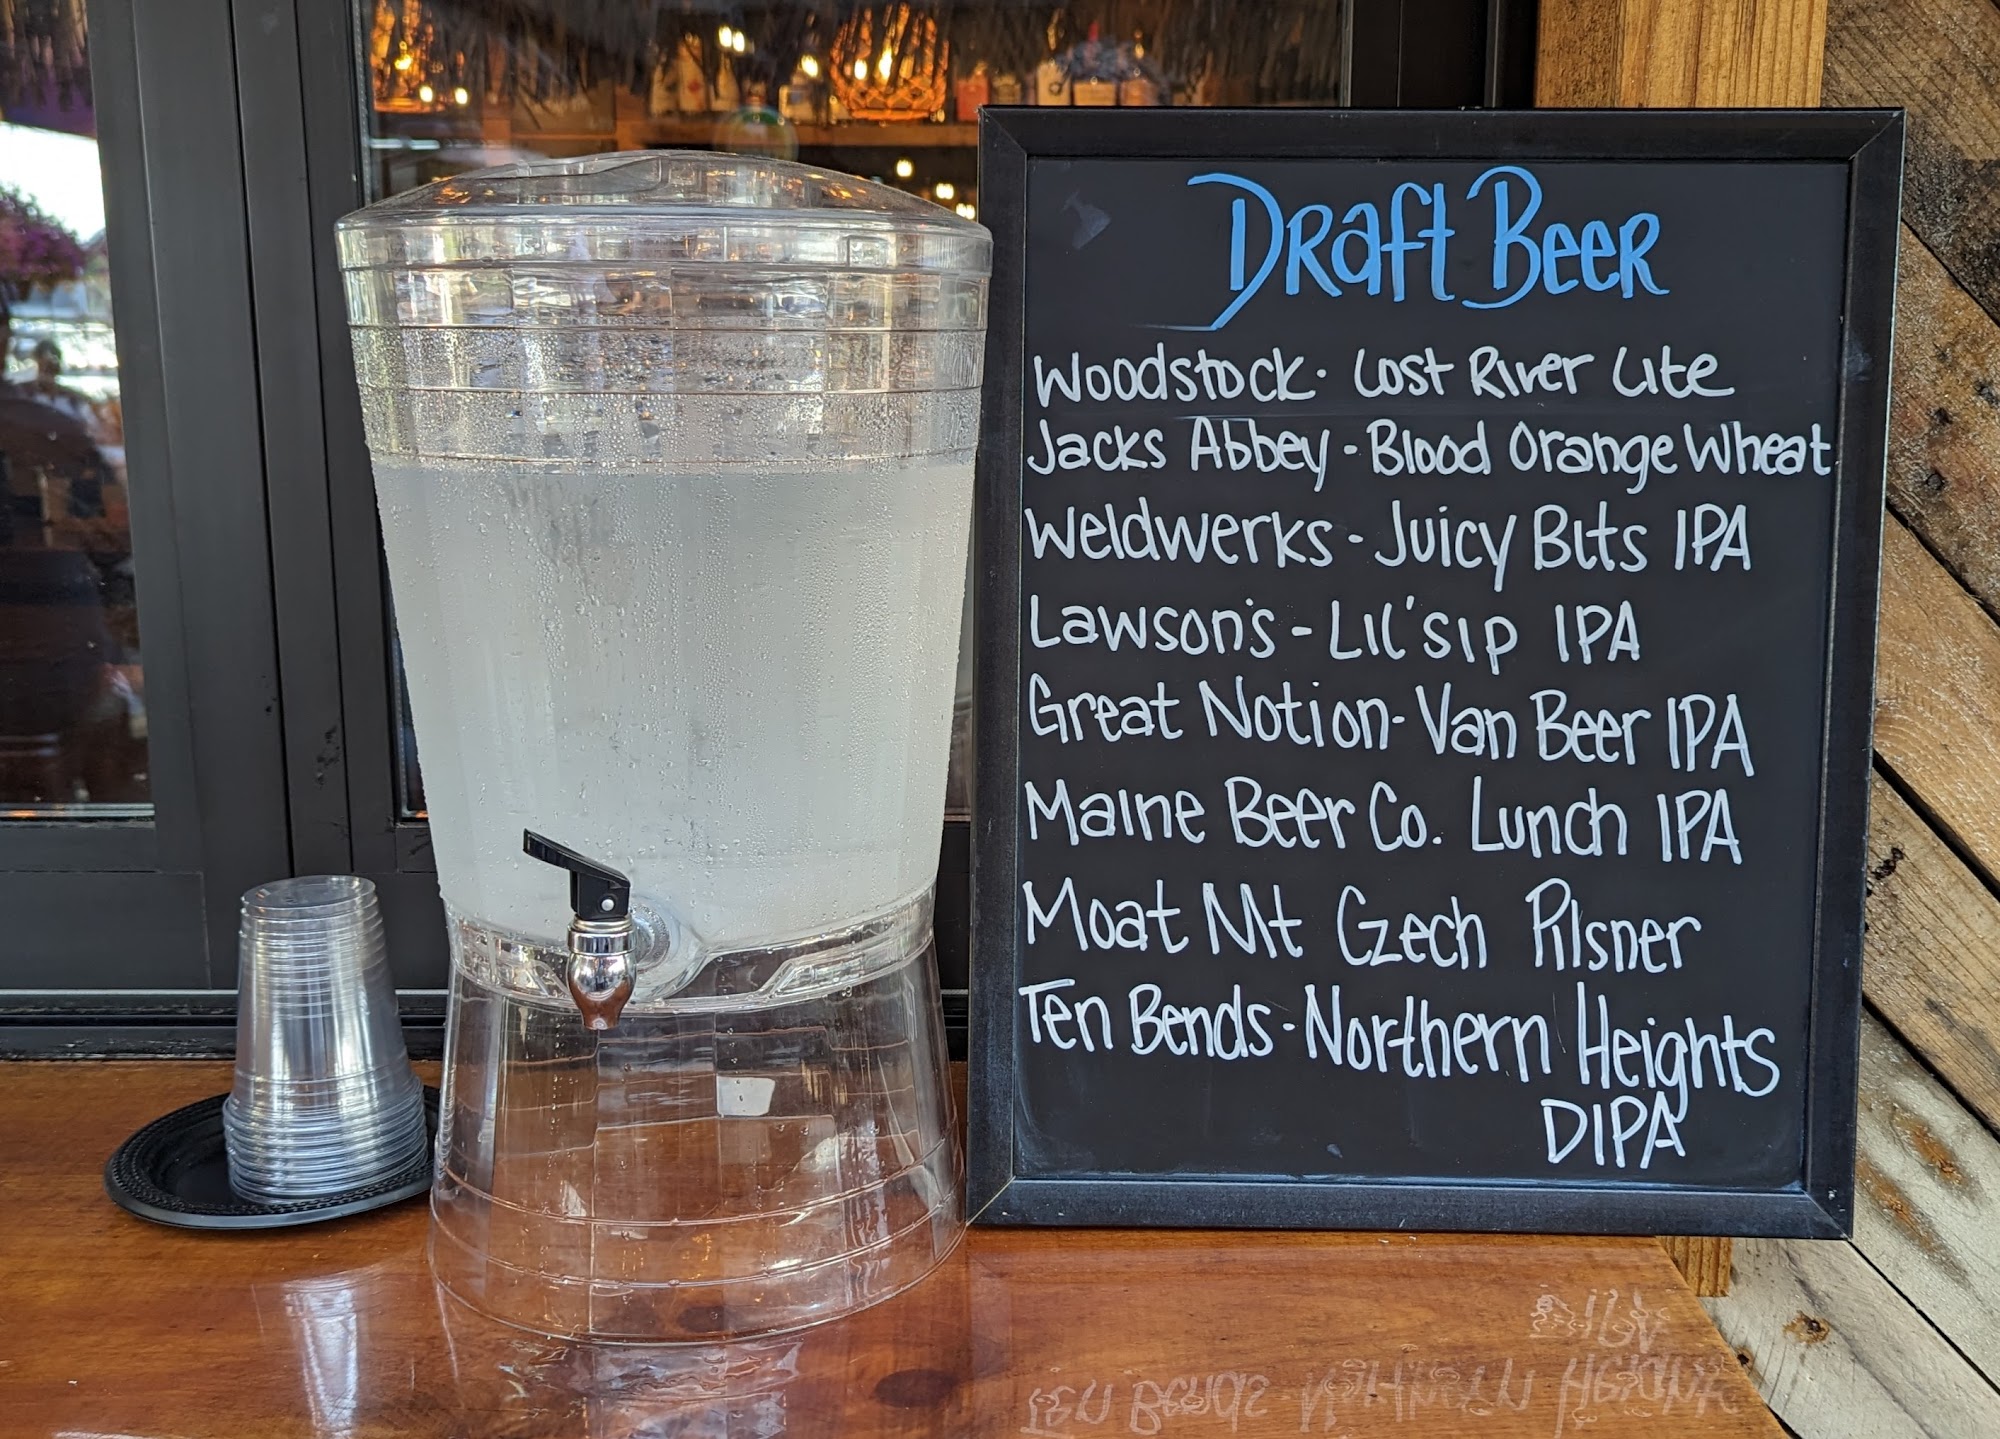 Draft Beer
Woodstock · Lost River Lite
Jacks Abbey - Blood Orange Wheat
Weldwerks - Juicy Bits IPA
Lawson's - Lil' Sip IPA
Great Notion - Van Beer IPA
Maine Beer Co. Lunch IPA
Moat Mt Czech Pilsner
Ten Bends - Northern Heights
DIPA